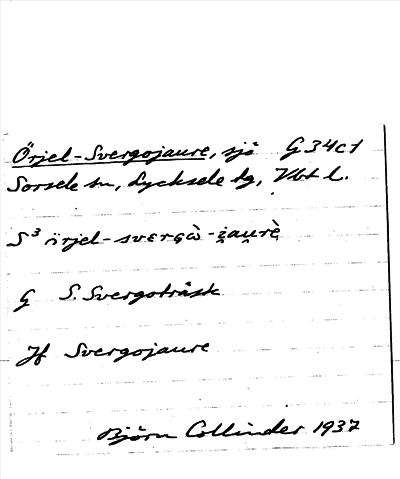 Örjel-Svergojaure, sjö G34c1
Sorsele sn, Lycksele lg, Vbt l.
S³ ïrjel-svεrgὼ-i̯au̯rὲ
G S. Svergoträsk
Jf Svergojaure
Björn Collinder 1937